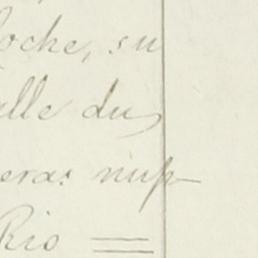 loche, su
alle du
eras nup
Rio =